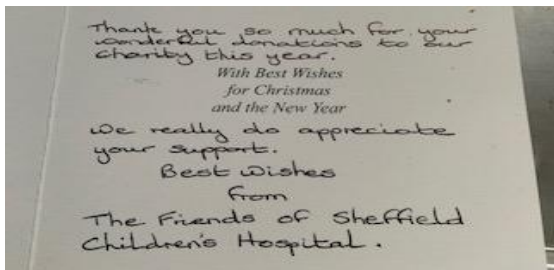 Thank you so much for your
wonderful donations to our
charity this year.
With Best Wishes
for Christmas
and the New Year
We really do appreciate
your support.
Best Wishes
from
The Friends of Sheffield
Children's Hospital.